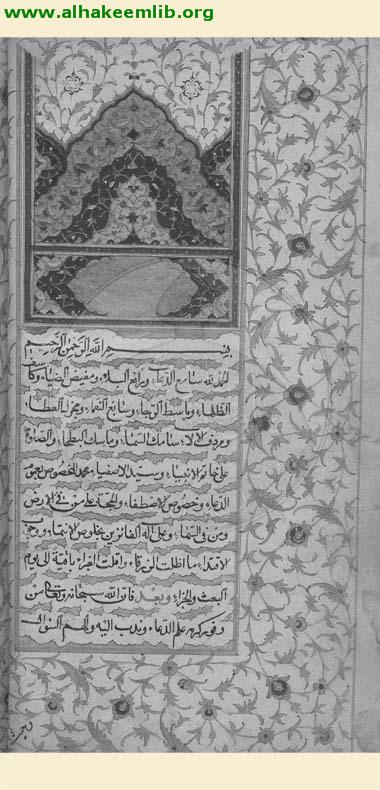 www.alhakeemlib.org
بسم الله الرحمن الرحيم
الحمد لله سامع الدعاء ودافع البلاء ومفيض الضياء وكاشف
الظلماء وباسط الرجاء وسابغ النعماء ومجزل العطاء
ومردف الالاء سامك السماء وماسك البطحاء والصلوة
على خاتم الانبياء وسيد الاصفياء محمد المخصوص بعموم
الدعاء وخصوص الاصطفاء والحجة على من في الارض
ومن في السماء وعلى آله الفائزين بخلوص الانتماء ووجوب
الاقتداء ما اظلت الزرقاء واقلت الغبراء باقية الى يوم
البعث والجزاء وبعد فان الله سبحانه وتعالى من
وفور كرمه علم الدعاء وندب اليه والهم السؤال